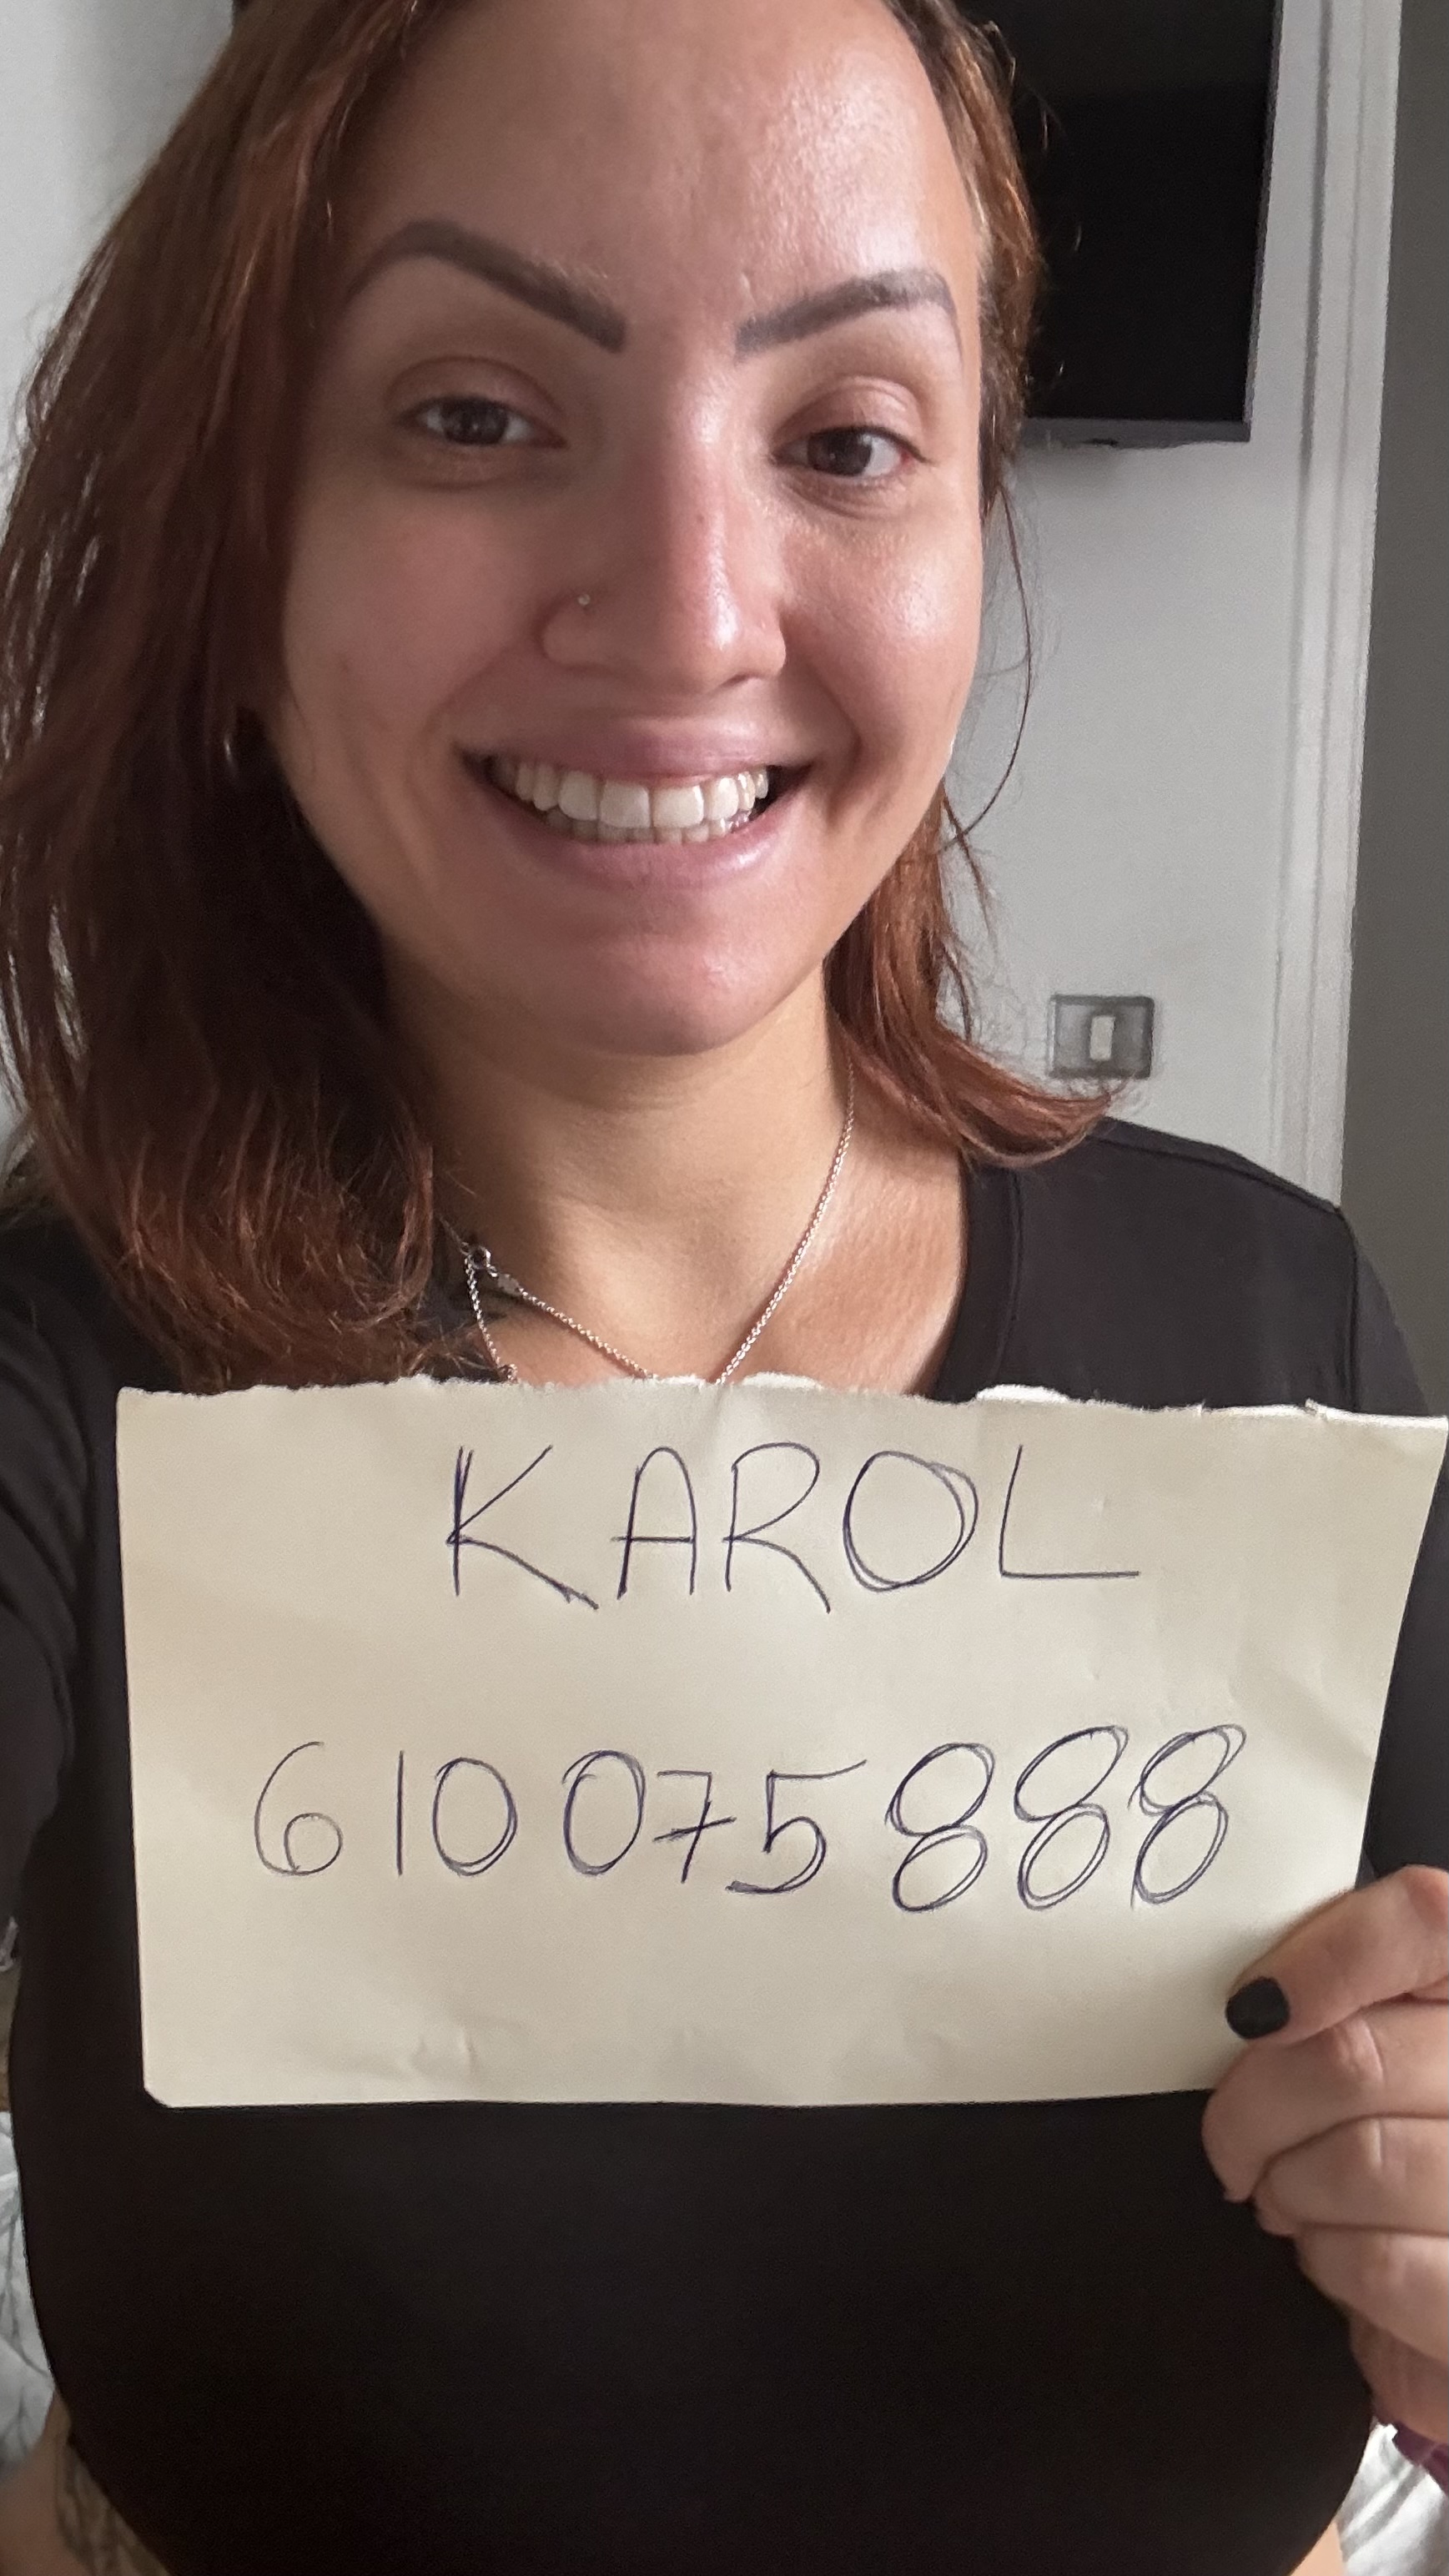 KAROL
610 075 888